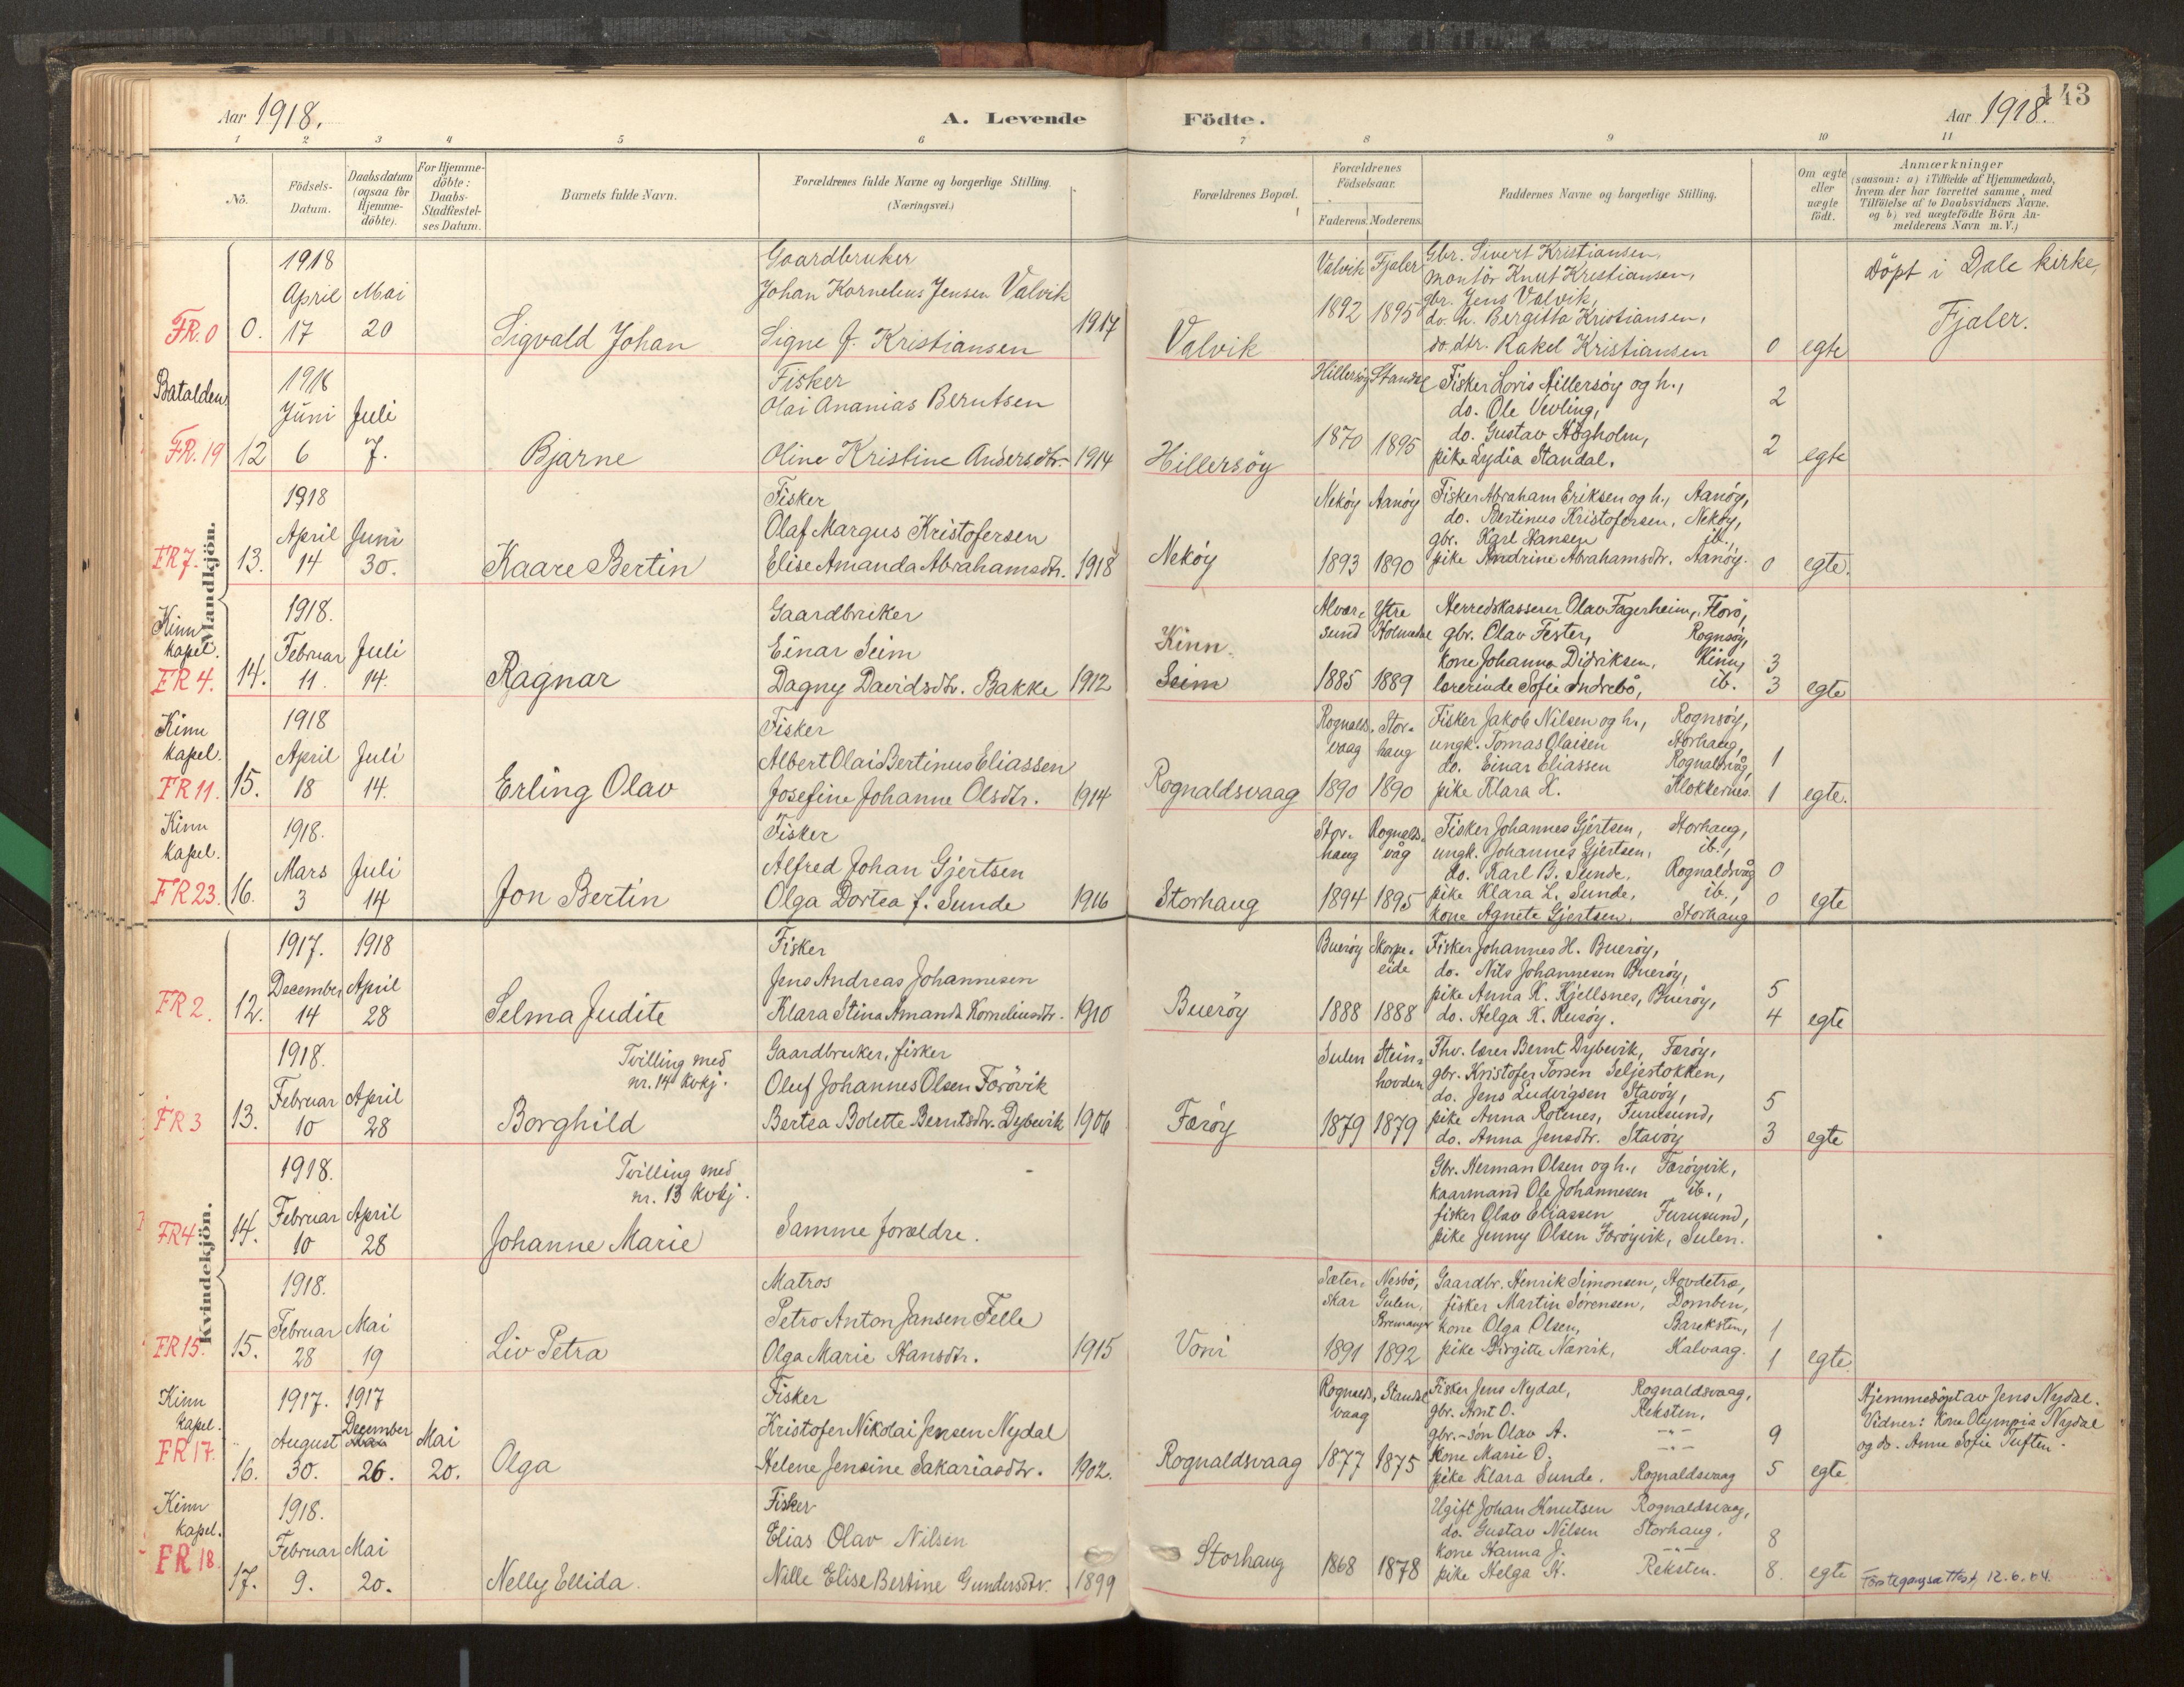 Aar 1918.
A. Levende Födte.
Aar 1918.
143
1 2 3 4 5 6 7 8 9 10 11
No.
Födsels-Datum.
Daabsdatum (ogsaa for Hjemme-döbte).
For Hjemme-döbte: Daabs-Stadfæstel-ses Datum.
Barnets fulde Navn.
Forældrenes fulde Navne og borgerlige Stilling.
(Næringsvei.)
Forældrenes Bopæl.
Forældrenes Födselsaar.
Faderens. Moderens.
Faddernes Navne og borgerlige Stilling.
Om ægte eller uægte födt.
Anmærkninger
(saasom: a) i Tilfælde af Hjemmedaab,
hvem der har forrettet samme, med
Tilföielse af to Daabsvidners Navne.
og b) ved uægtefödte Börn An-
melderens Navn m. V.)
Mandkjön.
FR. 0
0.
1918
April Mai
17 20
Sigvald Johan
Gaardbruker
Johan Kornelius Jensen Valvik
Signe J. Kristiansen 1917
Valvik
Valvik Fjaler
1892 1895
Gbr. Sivert Kristiansen,
montör Knut Kristiansen,
gbr. Jens Valvik,
do. h. Bergitta Kristiansen,
do. dtr. Rakel Kristiansen
0 egte
Döpt i Dale kirke,
Fjaler.
Batalden
FR. 19
12
1918
Juni Juli
6 7.
Bjarne
Fisker
Olai Ananias Berntsen
Oline Kristine Andersdtr. 1914
Hillersöy
Hillersöy Standal
1870 1895
Fisker Lovis Hillersöy og h.,
do. Ole Vevling,
do. Gustav Hògholm,
pike Lydia Standal.
2
2 egte
FR 7.
13.
1918
April Juni
14 30.
Kaare Bertin
Fisker
Olaf Margus Kristofersen
Elise Amanda Abrahamsdtr. 1918
Nekøy
Nekøy Aanøy
1893 1890
Fisker Abraham Eriksen og h., Aanöy,
do. Bertinus Kristofersen, Nekøy,
gbr. Karl Hansen ib.,
pike Andrine Abrahamsdtr. Aanöy.
0 egte.
Kinn kapel.
FR 4.
14.
1918.
Februar Juli
11. 14.
Ragnar
Gaardbruker
Einar Seim
Dagny Davidsdtr. Bakke 1912
Kinn
Seim
Alver-sund Ytre Holmedal
1885 1889
Herredskasserer Olav Fagerheim, Florö,
gbr. Olav Fester, Rognsöy,
kone Johanna Didriksen, Kinn,
lærerinde Sofie Indrebö, ib.
3
3 egte
Kinn kapel.
FR 11.
15.
1918
April Juli
18 14.
Erling Olav
Fisker
Albert Olai Bertinus Eliassen
Josefine Johanne Olsdtr. 1914
Rognaldsvaag
Rognalds-vaag Stor-haug
1890 1890
Fisker Jakob Nilsen og h., Rognsöy,
ungk. Tomas Olaisen Storhaug,
do. Einar Eliassen Rognaldsvåg,
pike Klara K. Klokkernes.
1
1 egte.
Kinn kapel.
FR 23.
16.
1918.
Mars Juli
3 14
Jon Bertin
Fisker
Alfred Johan Gjertsen
Olga Dortea f. Sunde 1916
Storhaug
Stor-haug Rognalds-våg
1894 1895
Fisker Johannes Gjertsen, Storhaug,
ungk. Johannes Gjertsen, ib.,
do. Karl B. Sunde, Rognaldsvåg
pike Klara L. Sunde, ib.,
kone Agnete Gjertsen, Storhaug
0
0 egte
Kvindekjön.
FR 2.
12.
1917. 1918
December April
14 28
Selma Judite
Fisker
Jens Andreas Johannesen
Klara Stina Amanda Korneliusdtr. 1910
Bueröy
Bueröy Skorpe-eide
1888 1888
Fisker Johannes H. Bueröy,
do. Nils Johannesen Bueröy,
pike Anna K. Kjellsnes, Bueröy,
do. Helga K. Reisöy.
5
4 egte
FR 3
13.
1918.
Februar April
10 28
Tvilling med
nr. 14 kvkj.
Borghild
Gaardbruker, fisker
Oluf Johannes Olsen Færövik
Bertea Bolette Berntsdtr. Dybevik 1906
Færöy
Sulen Stein-hovden
1879 1879
Fhv. lærer Bernt Dybevik, Færöy,
gbr. Kristofer Torsen Seljestokken,
do. Jens Ludvigsen Stavöy,
pike Anna Rotenes, Furusund,
do. Anna Jensdtr. Stavöy
5
3 egte
FR 4
14.
1918.
Februar April
10 28
Tvilling med
nr. 13 kvkj.
Johanne Marie
Samme forældre.
Gbr. Herman Olsen og h., Færöyvik,
kaarmand Ole Johannesen ib.,
fisker Olav Eliassen Furusund,
pike Jenny Olsen Færöyvik, Sulen.
FR 15.
15.
1918.
Februar Mai
28 19
Liv Petra
Matros
Petro Anton Jansen Felle
Olga Marie Hansdtr. 1915
Sæter-skar Nesbö, Gulen, Bremanger
1891 1892
Gaardbr. Henrik Simonsen, Hovdetræ,
fisker Martin Sörensen, Domben,
kone Olga Olsen, Bareksten,
pike Birgitte Nærvik, Kalvaag.
1
1 egte.
Kinn kapel.
FR 17.
16.
1917. 1917
August December Mai
30. 26. 20.
Olga
Fisker
Kristofer Nikolai Jensen Nydal
Helene Jensine Sakariasdtr. 1902.
Rognaldsvaag
Rognalds-vaag Standal
1877 1875
Fisker Jens Nydal, Rognaldsvaag,
gbr. Arnt O. Reksten,
gbr.-sön Olav A. -"-
Kone Marie O. -"-
pike Klara Sunde. Rognaldsvaag
9
5 egte.
Hjemmedöpt av Jens Nydal.
Vidner: Kone Olympia Nydal
og do. Anne Sofie Tuften.
Kinn kapel.
FR 18.
17.
1918.
Februar Mai
9. 20.
Nelly Ellida.
Fisker
Elias Olav Nilsen
Nille Elise Bertine Gundersdtr. 1899
Storhaug
1868 1878
Ugift Johan Knutsen Rognaldsvaag,
do. Gustav Nilsen Storhaug,
kone Hanna J. -"-
pike Helga H. Reksten.
8
8. egte
Förstegangsattest 12.6.04.